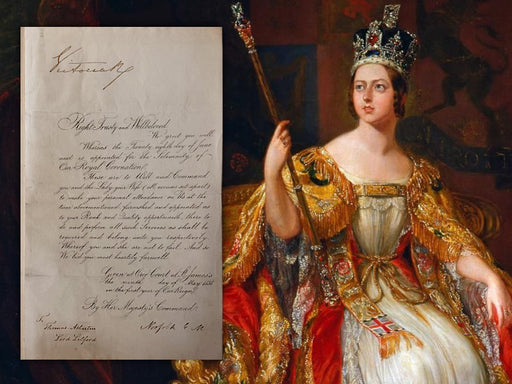 Victoria R
Right Trusty and Wellbeloved
We greet you well
Whereas the Twenty eighth day of June
next is appointed for the Solemnity of
Our Royal Coronation
These are to Will and Command
you and the Lady your Wife all excuses set apart
to make your personal attendance on Us at the
time abovementioned furnished and appointed as
to your Rank and Quality appertaineth there to
do and perform all such Services as shall be
required and belong unto you respectively
Whereof you and she are not to fail And so
We bid you most heartily farewell
Given at Our Court at St James's
the ninth day of May 1838
in the first year of Our Reign
By Her Majesty's Command
To
Thomas Atherton
Lord Lilford
Norfolk E M